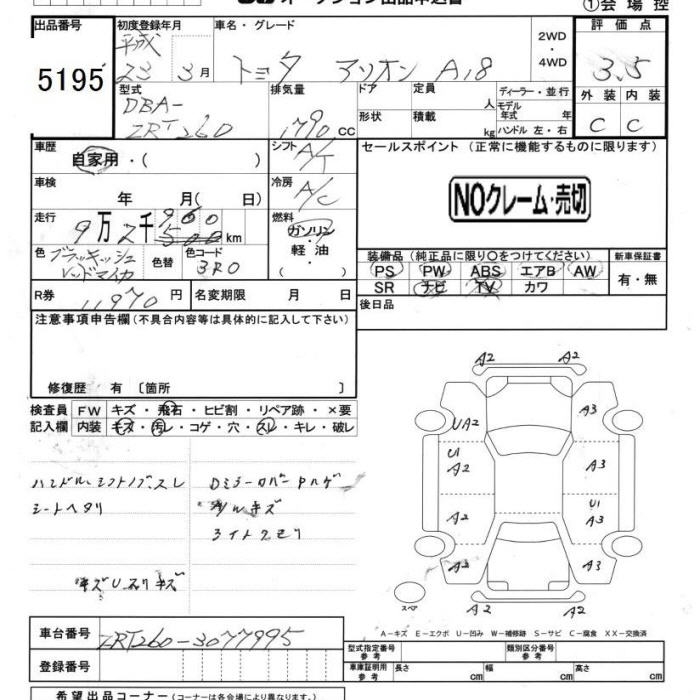 ①会場控
出品番号 初度登録年月 車名・グレード 2WD・4WD 評価点
5195 平成 23 3月 トヨタ アリオン A18 3.5
型式 DBA-ZRT260 排気量 1790 CC ドア 定員 人 ディーラー・並行
形状 積載 kg モデル年式 年 ハンドル 左・右
外装 内装
C C
車歴 自家用・( ) シフト A/T セールスポイント (正常に機能するものに限ります)
車検 年 月( 日) 冷房 A/C NOクレーム・売切
走行 9万2千900 km 燃料 ガソリン・軽油・( )
色 ブラッキッシュレッドマイカ 色替 色コード 3R0
装備品 (純正品に限り○をつけてください) 新車保証書
PS PW ABS エアB AW 有・無
SR ナビ TV カワ
R券 11970円 名変期限 月 日 後日品
注意事項申告欄 (不具合内容等は具体的に記入して下さい)
修復歴 有 〔箇所 〕
検査員記入欄 FW キズ・飛石・ヒビ割・リペア跡・×要
内装 キズ・汚レ・コゲ・穴・スレ・キレ・破レ
ハンドル、シフトノブスレ
シートヘタリ
Dミラーカバー
A/Wキズ
ライトクモリ
キズUスリキズ
A2 A2
UA2 A3
U1 A2 A3
A2 U1 A3
A2 A3
A2 A2
スペア
A-キズ E-エクボ U-凹み W-補修跡 S-サビ C-腐食 XX-交換済
車台番号 ZRT260-3077995
登録番号
型式指定番号 参考 類別区分番号 参考
車庫証明用 参考 長さ cm 幅 cm 高さ cm
希望出品コーナー (コーナーは各会場により異なります)